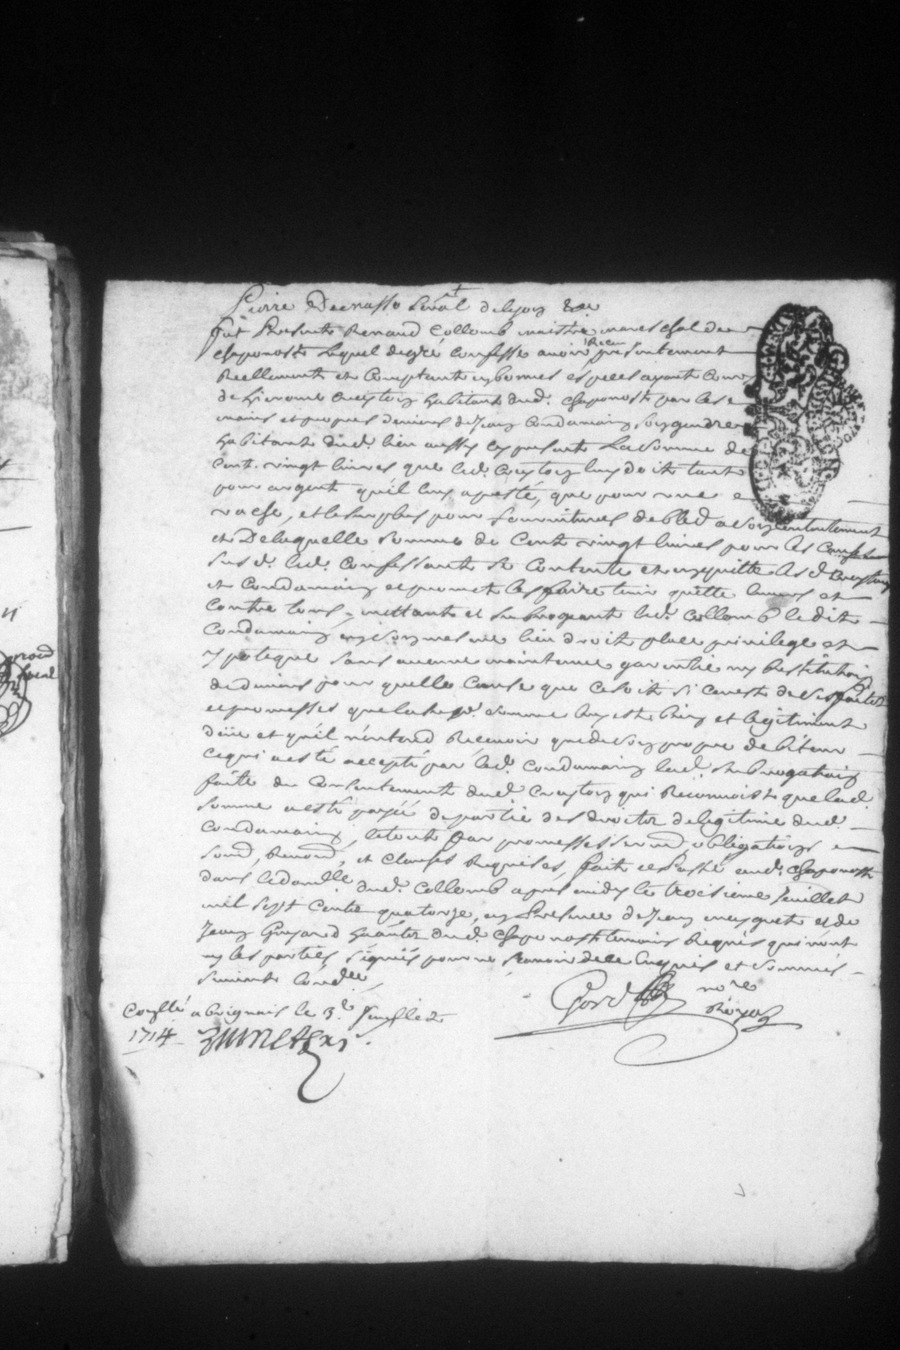 Pierre Denasso Senal de Lyon &ca
fut Presente Renaud Collomb maistre mareschal de
Chaponost lequel de gré confesse avoir Rceu presentement
Reellement et Comptant en bonnes especes ayant Cours
de hierome Creyton habitant dud. Chaponost par les
mains et propres deniers de Jean Condamain son gendre
habitant dud. lieu aussy cy present La somme de
Cent vingt livres que led. Creyton luy doit tant
pour argent qu'il luy a presté, que pour une
vache, et le surplus pour fournitures de bled a son contentement
et De laquelle somme de Cent vingt livres pour les Causes
susd. led. confessant se Contente et en quitte lesd. Creyton
et Condamain et promet les faire tenir quitte envers et
contre tous, mettant et subrogeant led. Collomb ledit
Condamain en son mesme lieu droit place privilege et
ypoteque sans aucune maintenue garentie ny Restitution
de deniers pour quelle Cause que ce soit si ce n'est de ses faits
et promesses que la somme luy est bien et legitiment
deüe et qu'il n'entend Recevoir que de son propre debiteur
ce qui a esté accepté par led. Condamain lad. subrogation
faite du Consentement dud. Creyton qui Reconnoist que lad.
somme a esté payée de partie des droits de legitime dud.
Condamain, le tout par promesses serment obligations
soud, Renond, et Clauses Requises, fait et Passé aud. Chaponost
dans le domille dud. Collomb apres midy le troisieme Juillet
mil sept Cents quatorze, en Presence de Jean musquet et de
Jean Guyard habitants dud. Chaponost temoins Requis qui n'ont
ny les parties signés pour ne scavoir de ce Enquis et sommés
Conllé a brignais le 3e Juillet
1714
nore
Royal